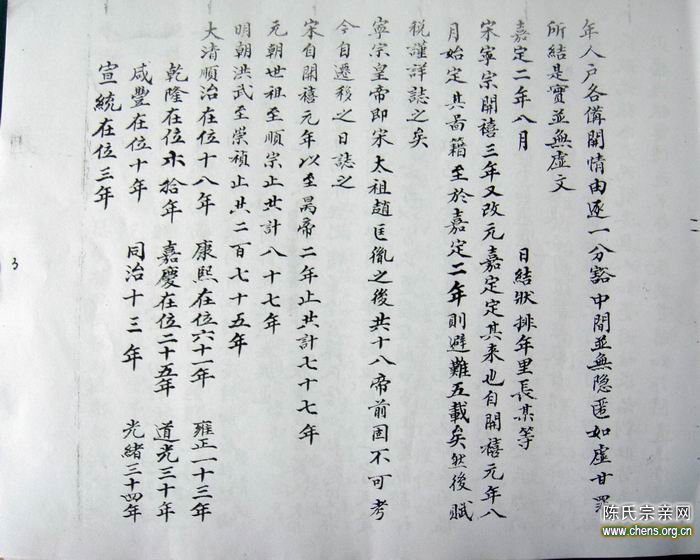 年人戶各俻開情由逐一分豁中間並無隐匿如虛甘罪
所結是實並無虛文
嘉定二年八月 日結狀排年里長某等
宋寧宗開禧三年又改元嘉定定其来也自開禧元年八
月始定其啚籍至於嘉定二年則避難五載矣然後賦
稅謹詳誌之矣
寧宗皇帝即宋太祖趙匡胤之後共十八帝前固不可考
今自遷移之日誌之
宋自開禧元年以至昺帝二年止共計七十七年
元朝世祖至順宗止共計八十七年
明朝洪武至崇禎止共二百七十五年
大清順治在位十八年 康熙在位六十一年 雍正一十三年
乾隆在位六拾年 嘉慶在位二十五年 道光三十年
咸豐在位十年 同治十三年 光緒三十四年
宣統在位三年
3
陈氏宗亲网
www.chens.org.cn